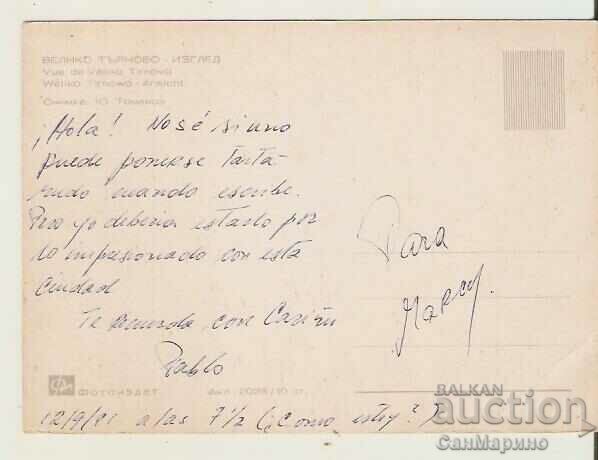 ВЕЛИКО ТЪРНОВО - ИЗГЛЕД
Vue de Véliko Tirnovo
Weliko Tirnowo - Ansicht
Снимка: Ю. Томанов
¡Hola! No sé si uno
puede ponerse tarta-
mudo cuando escribe.
Pero yo debería estarlo por
lo impresionado con esta
ciudad
Te recuerda, con Cariño
Pablo
Para
Marcy.
ФОТОИЗДАТ
12/9/81 a las 7 1/2 (¿Cómo estoy?)
BALKAN
auction
СанМарино